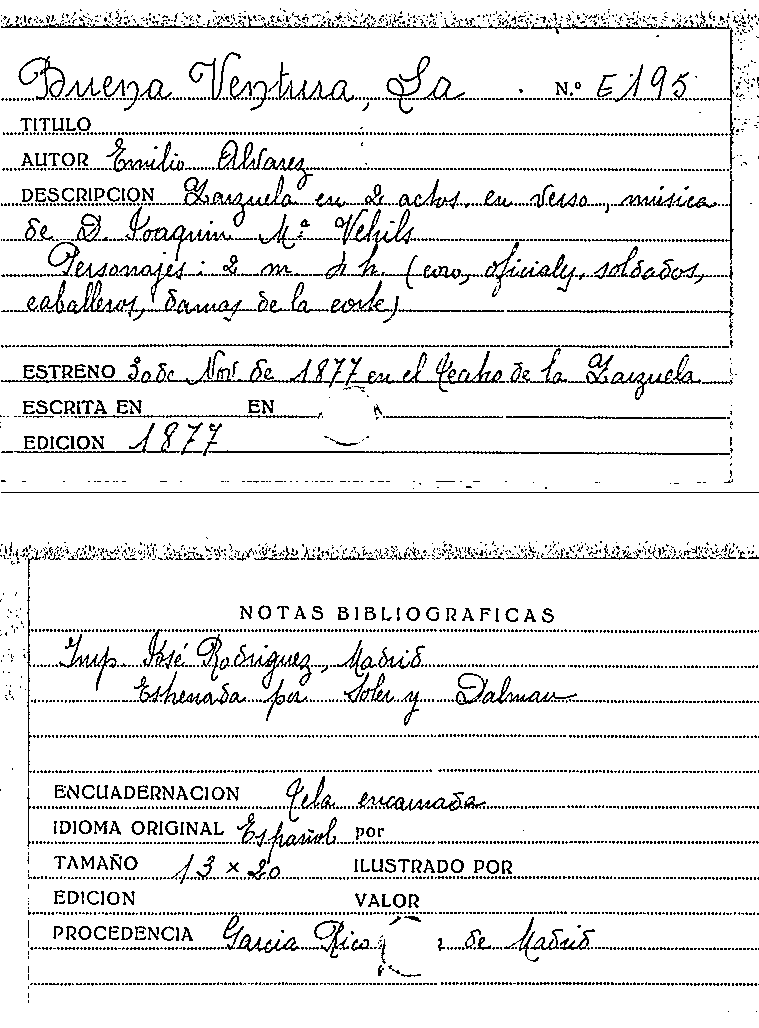 Buena Ventura, La N.º E195
TITULO
AUTOR Emilio Alvarez
DESCRIPCION Zarzuela en 2 actos. en verso, música
de D. Joaquin M.ª Vehils
Personajes: 2 m. h. (coro, oficiales, soldados,
caballeros, damas de la corte)
ESTRENO 30 de Nov. de 1877 en el Teatro de la Zarzuela
ESCRITA EN EN
EDICION 1877
NOTAS BIBLIOGRAFICAS
Imp. José Rodriguez, Madrid
Estrenada por Soler y Dalmau
ENCUADERNACION Tela encarnada
IDIOMA ORIGINAL Español por
TAMAÑO 13 x 20 ILUSTRADO POR
EDICION VALOR
PROCEDENCIA Garcia Rico de Madrid